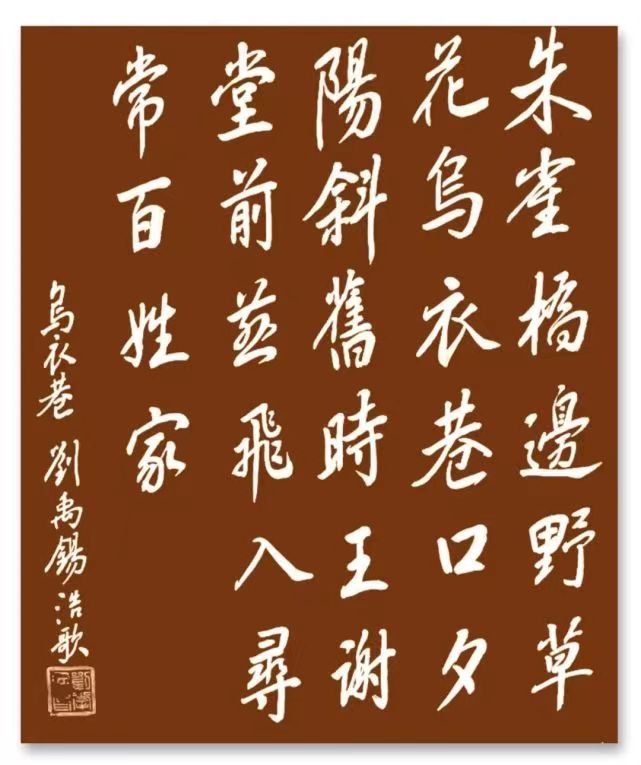 朱雀橋邊野草
花烏衣巷口夕
陽斜舊時王謝
堂前燕飛入尋
常百姓家
烏衣巷 劉禹錫 浩歌